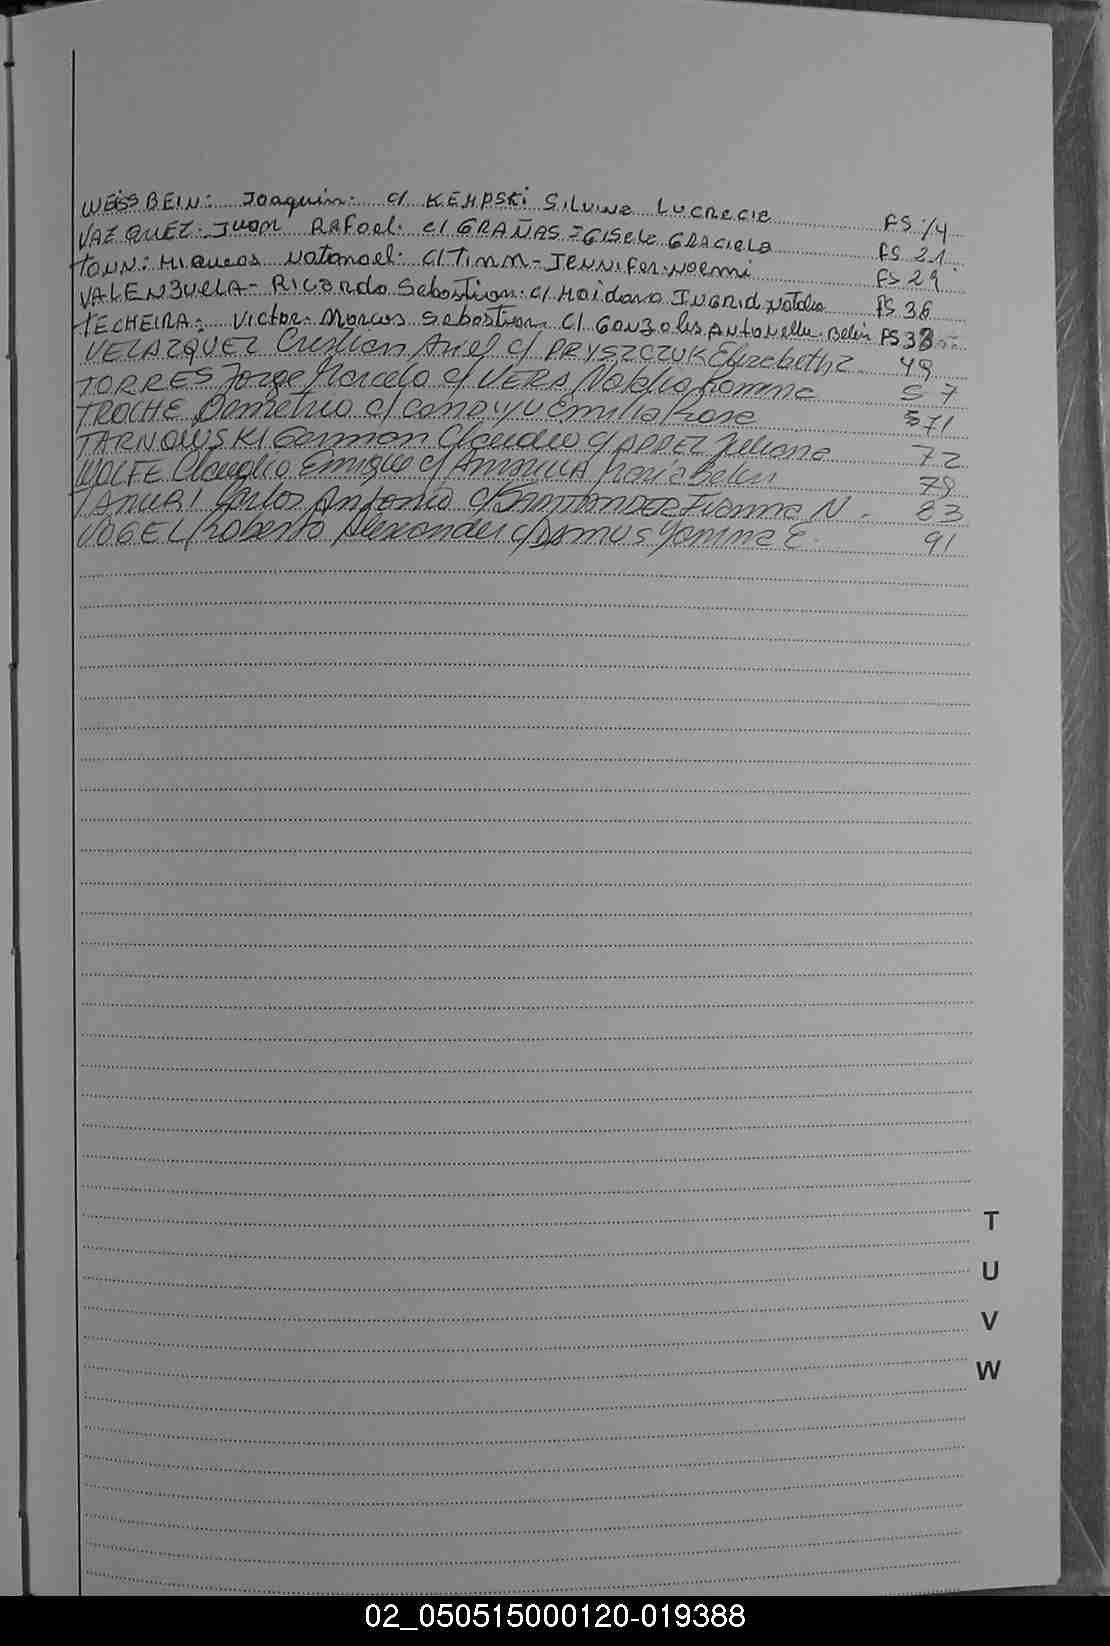 WEISSBEIN: Joaquin: c/ KEMPSKI SILVINA LUCRECIA FS 14
VAZQUEZ. Juan RAFael. c/ GRAÑAS GISELE GRACIELA FS 21
TONN: Miqueas Natanael. C/ Timm - JENNIFER NOEMI FS 29
VALENZUELA - RICARDO Sebastian. c/ Maidana INGRID Natalia FS 36
TECHEIRA: Victor. Marcos Sebastian C/ GONZALES ANTONELLA. Belen FS 38
VELAZQUEZ Cristian Ariel c/ PRYSZCZUK Elizabeth 49
TORRES Jorge Marcelo c/ VERA Natalia Romina 57
TROCHE Demetrio c/ Emilia Rosa 71
TARNOWSKI German Claudio c/ Juliana 72
WOLFE Claudio Enrique c/ Maria Belen 79
Carlos Antonio c/ SANTANDER N. 83
VOGEL Roberto Alexander c/ Yanina E. 91
T
U
V
W
02_050515000120-019388